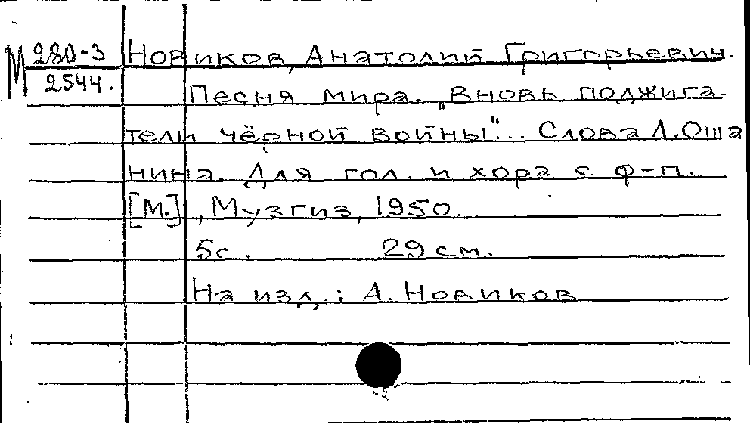 М 280-3 Новиков, Анатолий Григорьевич.
2544.
Песня мира. "Вновь поджига-
тели чёрной войны"... Слова Л. Оша
нина. Для гол. и хора с ф-п.
[М.], Музгиз, 1950.
5с. 29 см.
На изд.: А. Новиков